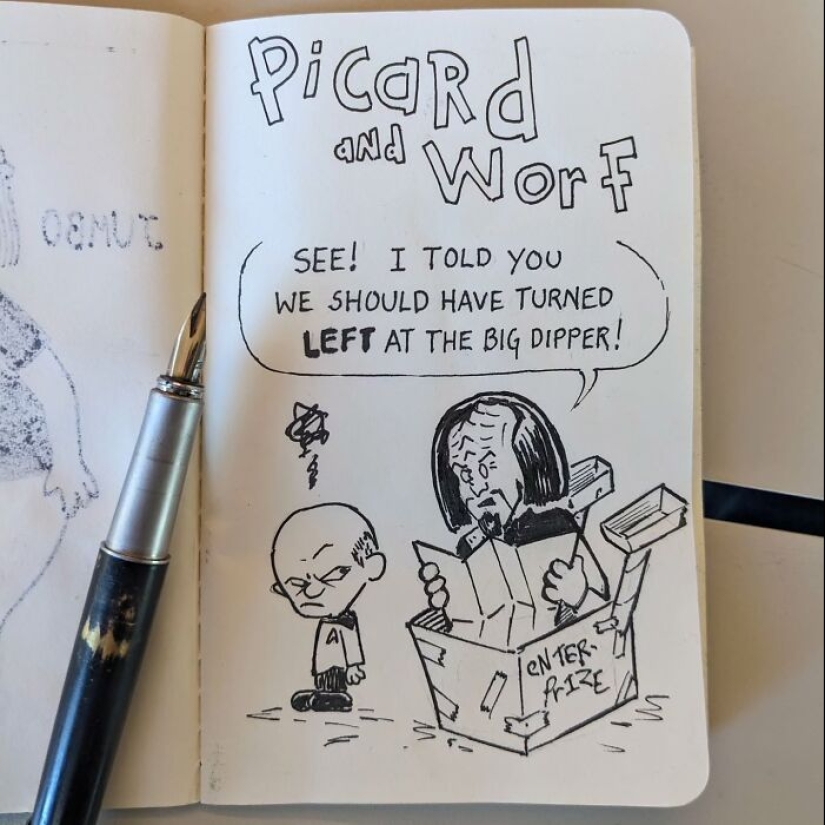 PicaRd
aNd
WorF
SEE! I TOLD YOU
WE SHOULD HAVE TURNED
LEFT AT THE BIG DIPPER!
A
eNTER-
PriZE
JUMBO